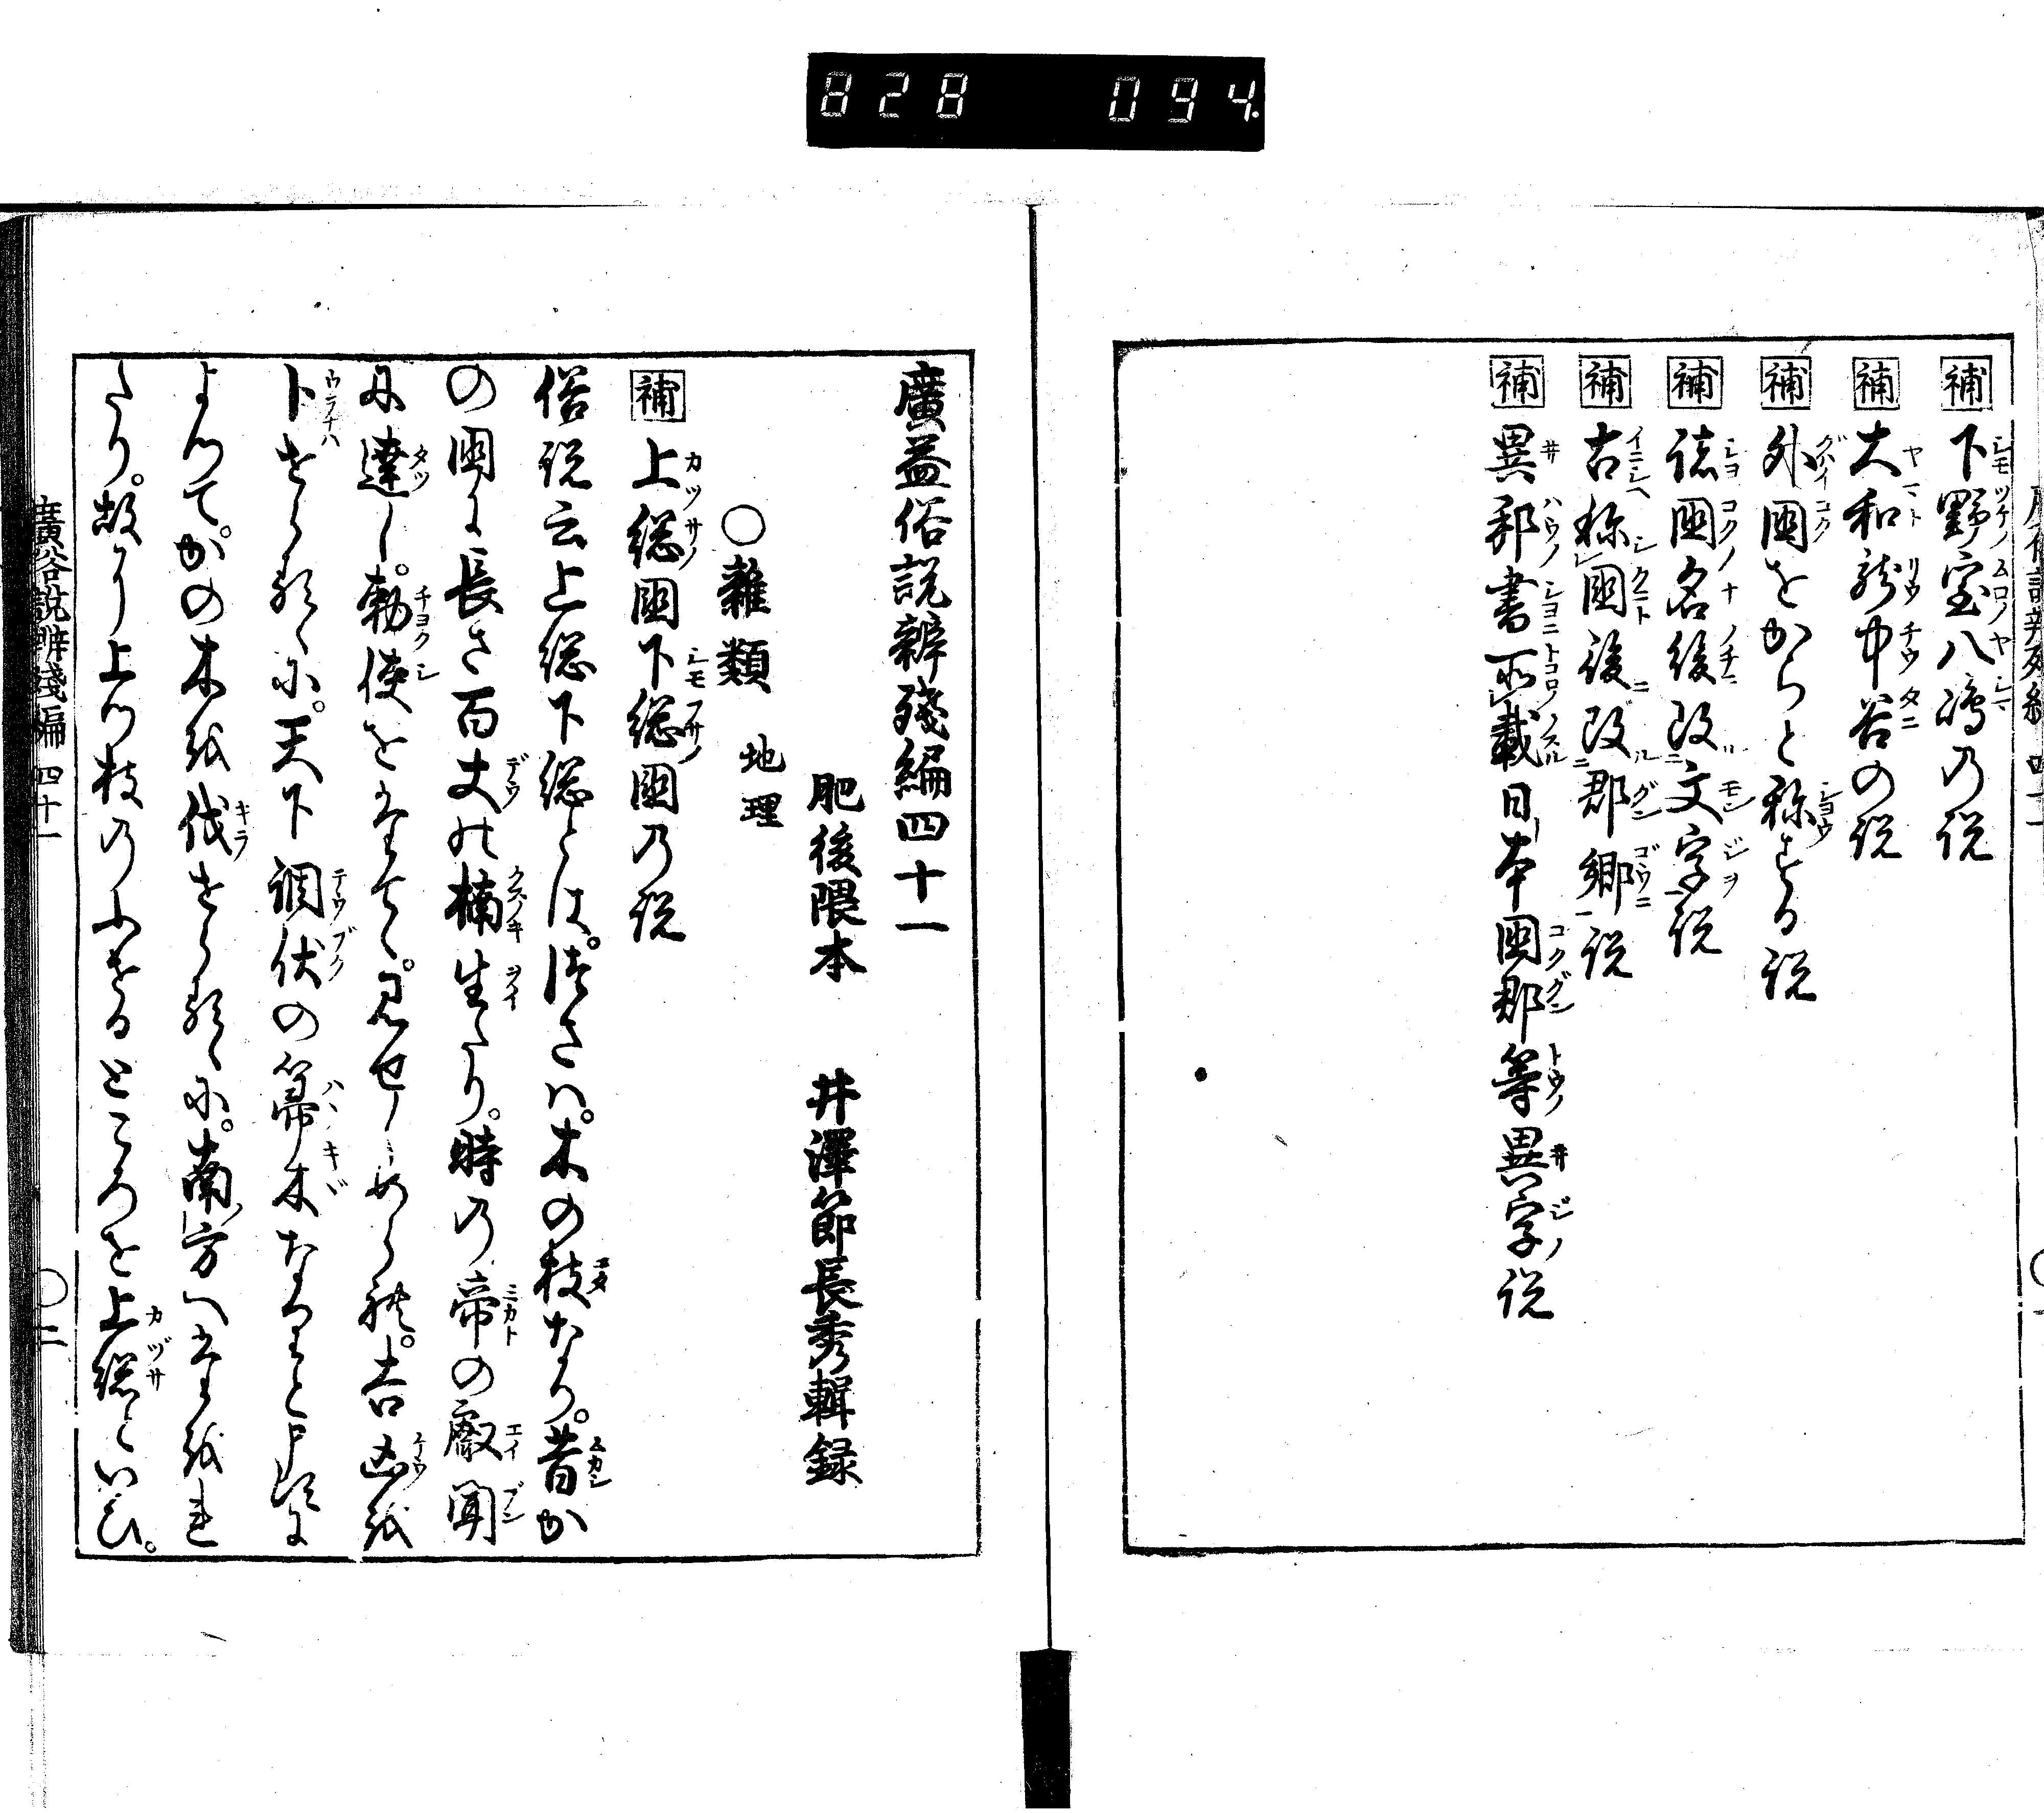 828 094
補 下野室八嶋乃説
補 大和龍中谷の説
補 外國をからと称する説
補 諸國名後改文字説
補 古称國後改郡郷説
補 異邦書所載日本國郡等異字説
廣益俗説辨殘編四十一
肥後隈本 井澤節長秀輯録
○雜類 地理
補 上総國下総國乃説
俗説云上総下総とは。ふさハ。木の枝なり。昔か
の國に長さ百丈の楠生たり。時の帝の叡聞
に達し。勅使をたてゝ。見せしめらる。吉凶を
卜せらるゝに。天下調伏の箒木なりと申に
よつて。かの木を伐せらるゝに。南方へたをれ
たり。故より上つ枝のふせるところを上総といひ。
廣俗説辨殘編 四十一 ○二